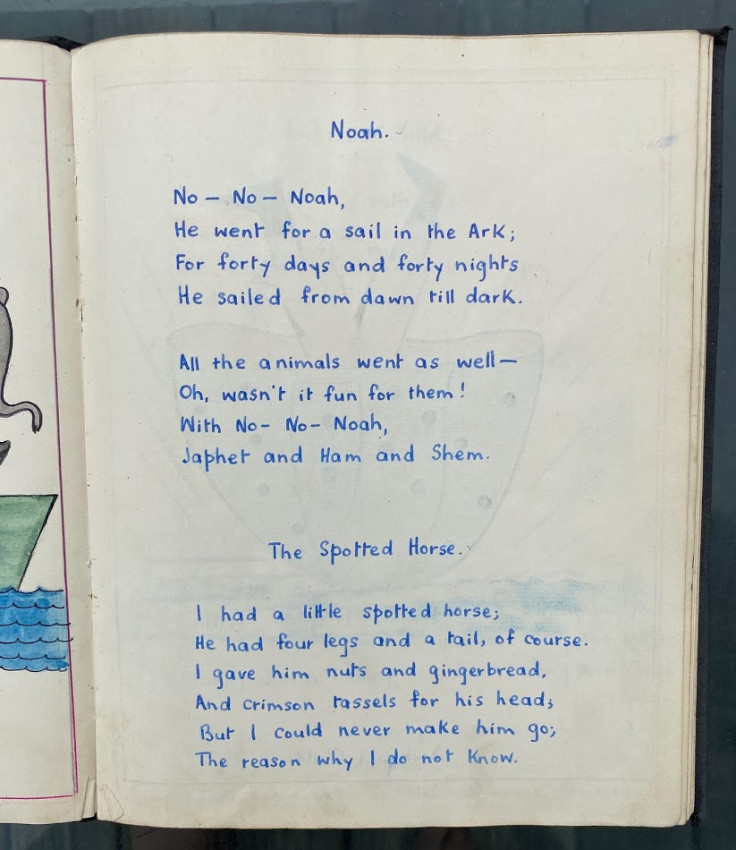 Noah.
No – No – Noah,
He went for a sail in the Ark;
For forty days and forty nights
He sailed from dawn till dark.
All the animals went as well –
Oh, wasn't it fun for them!
With No- No- Noah,
Japhet and Ham and Shem.
The Spotted Horse.
I had a little spotted horse;
He had four legs and a tail, of course.
I gave him nuts and gingerbread,
And crimson tassels for his head;
But I could never make him go;
The reason why I do not know.